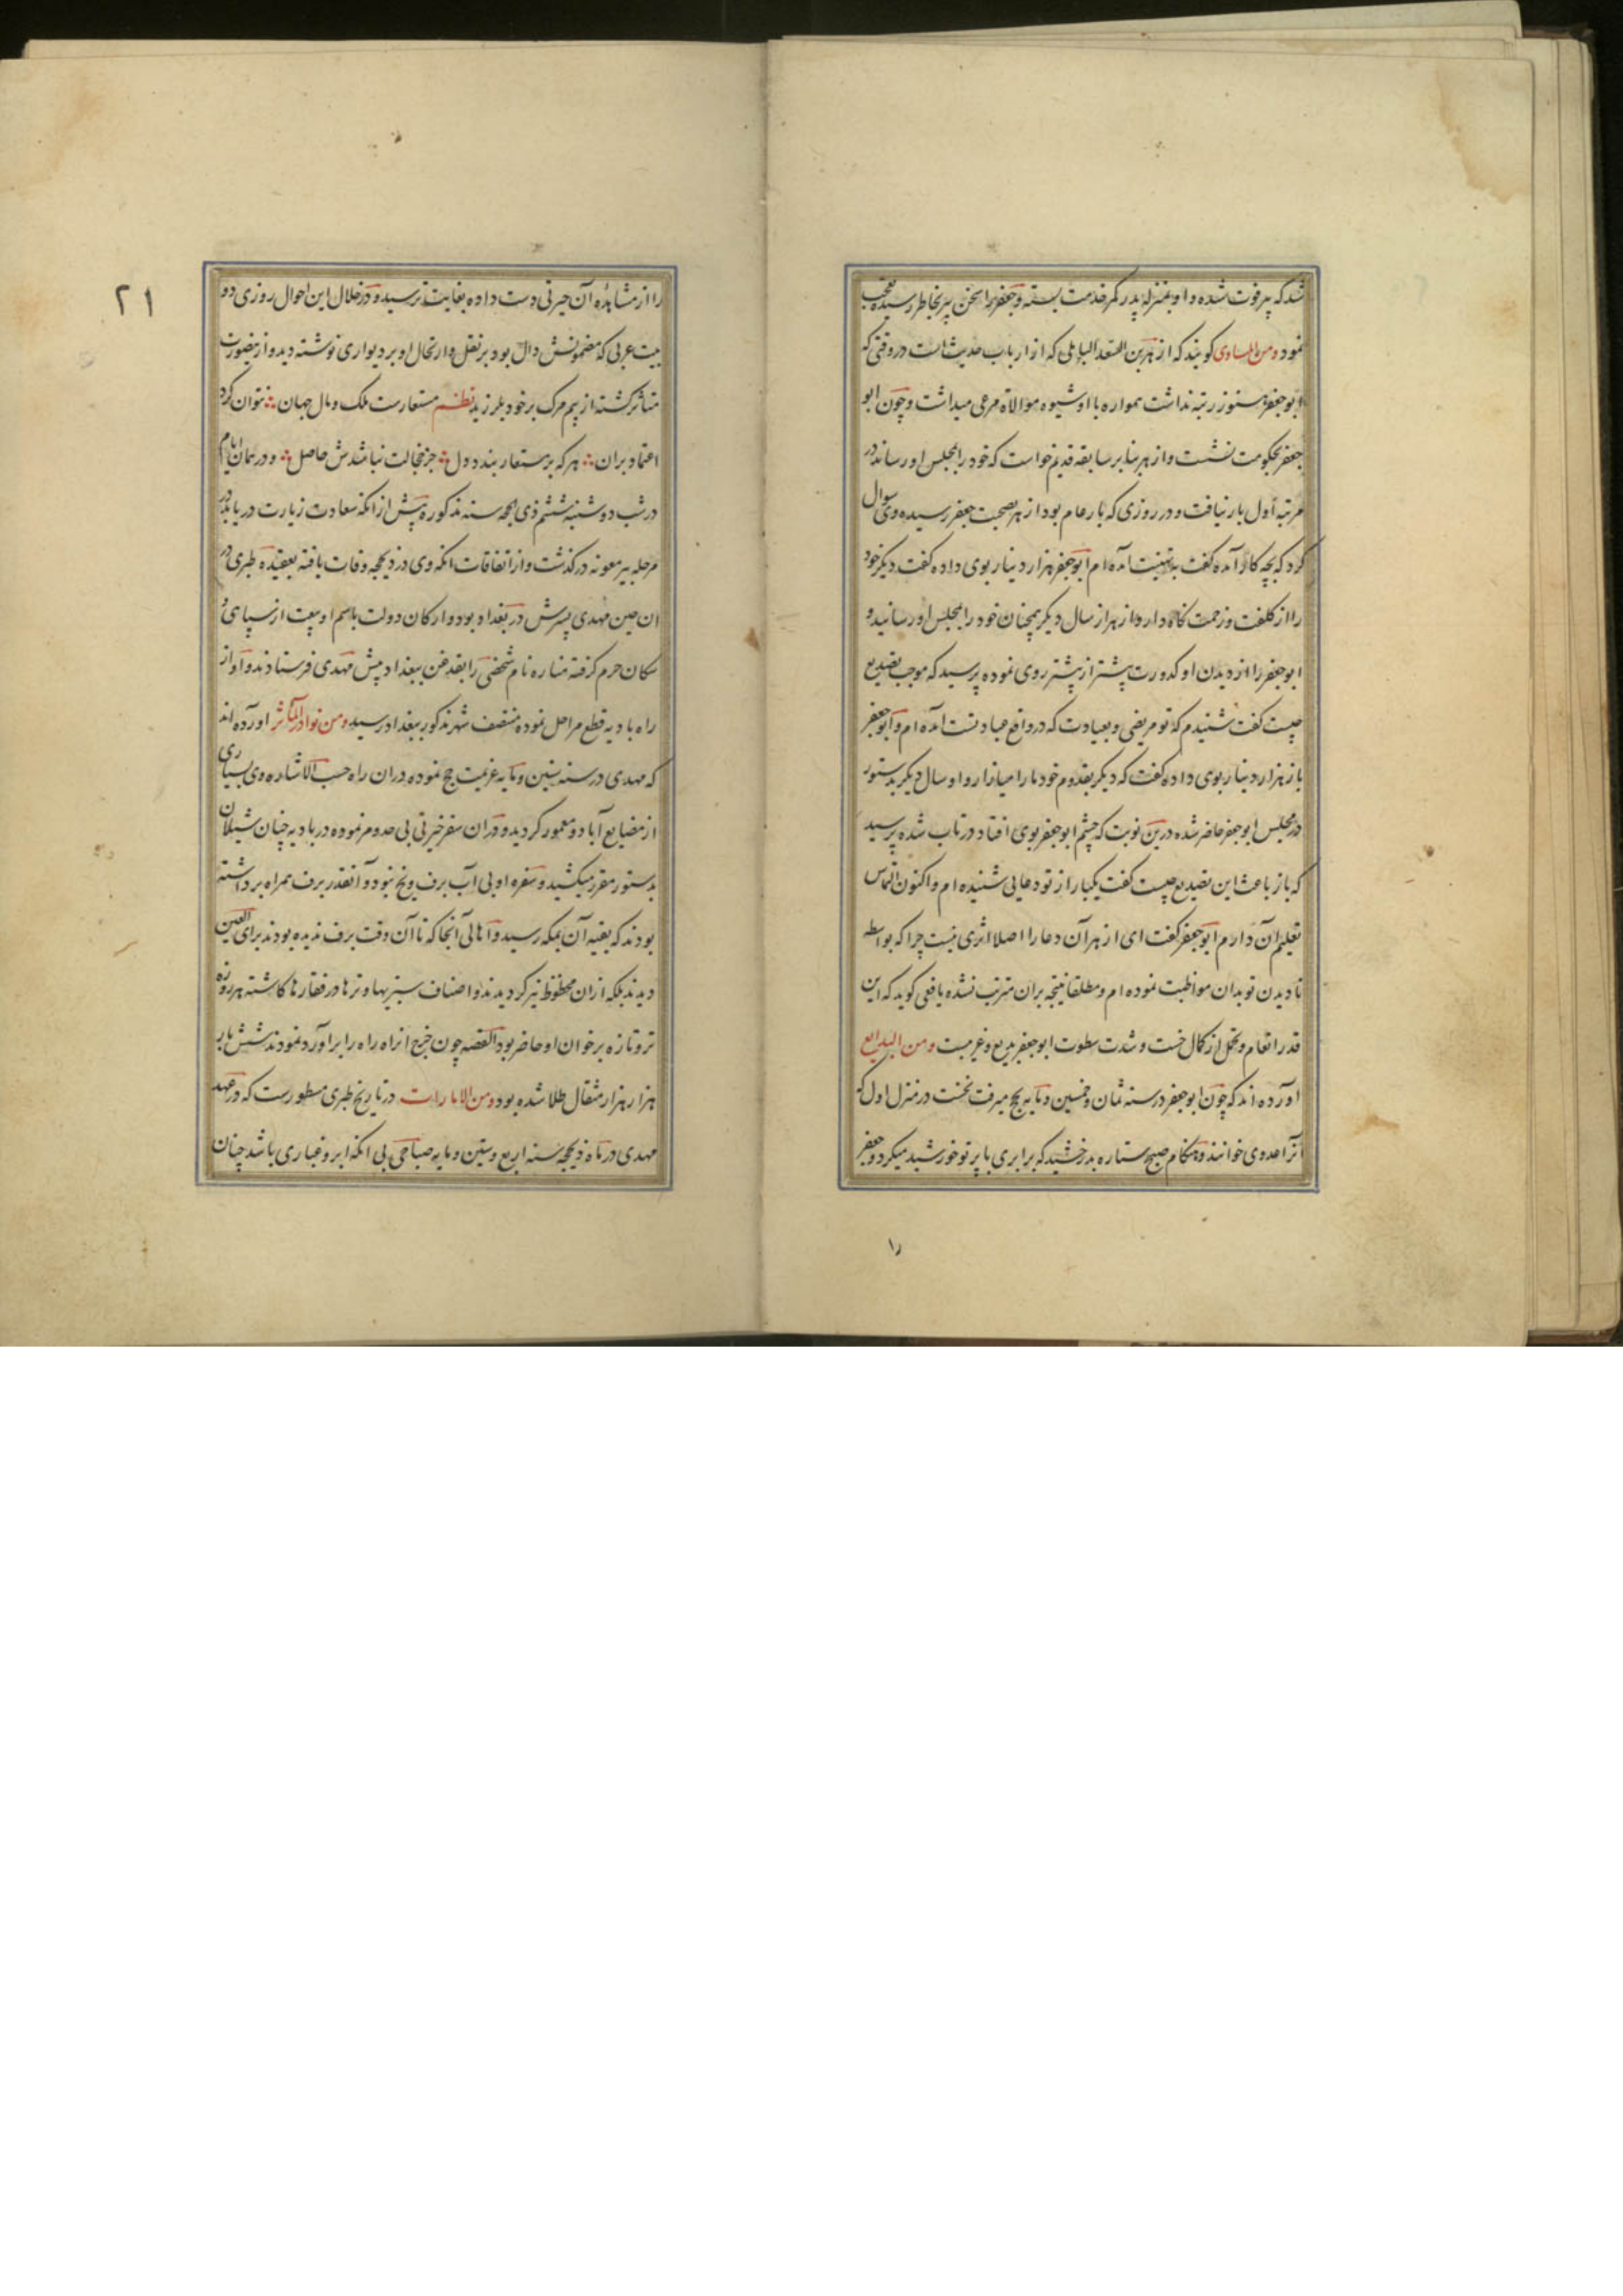 شد که پیر فوت شده و او بمنزله پدر کمر خدمت بسته و جعفر را سخن پیر بخاطر رسیده تعجب
نمود ومن المساوی کویند که ازهر بن السعد الباهلی که از ارباب حدیث است در وقتی که
ابو جعفر هنوز رتبه نداشت همواره با او شیوه موالاة مرعی میداشت و چون ابو
جعفر بحکومت نشست و ازهر بنا بر سابقه قدیم خواست که خود را بمجلس او رساند در
مرتبه اول بار نیافت و در روزی که بار عام بود ازهر بصحبت جعفر رسیده وی سوال
کرد که بچه کار آمده کفت به تهنیت آمده ام ابو جعفر هزار دینار بوی داده کفت دیکر خود
را از کلفت و زحمت نکاه دار و ازهر از سال دیکر همچنان خود را بمجلس او رسانید و
ابو جعفر را از دیدن او کدورت پیشتر از پیشتر روی نموده پرسید که موجب تصدیع
چیست کفت شنیدم که تو مریضی و بعیادت که در واقع عبادتست آمده ام و ابو جعفر
باز هزار دینار بوی داده کفت که دیکر بقدوم خود ما را میازار و او سال دیکر بدستور
در مجلس ابو جعفر حاضر شده درین نوبت که چشم ابو جعفر بوی افتاد در تاب شده پرسید
که باز باعث این تصدیع چیست کفت یکبار از تو دعایی شنیده ام و اکنون التماس
تعلیم آن دارم ابو جعفر کفت ای ازهر آن دعا را اصلا اثری نیست چرا که بواسطه
نادیدن تو بدان مواظبت نموده ام و مطلقا نتیجه بران مترتب نشده یافعی کوید که این
قدر انعام و تحمل از کمال خست و شدت سطوت ابو جعفر بدیع و غریبست ومن البدایع
آورده اند که چون ابو جعفر در سنه ثمان و خمسین و مایه بحج میرفت نخست در منزل اول که
آنرا عدوی خوانند و هنکام صبح ستاره بدرخشید که برابری با پرتو خورشید میکرد و جعفر
را
۲۱
را از مشاهده آن حیرتی دست داده بغایت ترسید و در خلال این احوال روزی دو
بیت عربی که مضمونش دال بود بر نقل و ارتحال او بر دیواری نوشته دید و از ینصورت
متاثر کشته از بیم مرک بر خود بلرزید نظم مستعارست ملک و مال جهان ؞ نتوان کرد
اعتماد بران ؞ هر که بر مستعار بندد دل ؞ جز خجالت نباشدش حاصل ؞ و در همان ایام
در شب دوشنبه ششم ذی الحجه سنه مذکوره پیش از انکه سعادت زیارت دریابد در
مرحله بیر معونه درکذشت و از اتفاقات انکه وی در ذیحجه وفات یافته بعقیده طبری در
ان حین مهدی پسرش در بغداد بود و ارکان دولت باسم او بیعت از سپاهی و
سکان حرم کرفته مناره نام شخصی را بقدغن ببغداد پیش مهدی فرستادند و او از
راه بادیه قطع مراحل نموده منتصف شهر مذکور ببغداد رسید ومن نوادر المآثر آورده اند
که مهدی در سنه ستین و مایه عزیمت حج نموده دران راه حسب الاشاره وی بسیاری
از مصایع آباد و معمور کردید و دران سفر خیرتی بی حد و مر نموده در بادیه چنان شیلان
بدستور مقرر میکشید و سفره او بی آب برف و یخ نبود و آنقدر برف همراه برداشته
بودند که بقیه آن بمکه رسید و اهالی آنجا که تا آن وقت برف ندیده بودند برای العین
دیدند بلکه ازان محظوظ نیز کردیدند و اصناف سبزیها و ترها در قطارها کاشته هر روزه
تر و تازه بر خوان او حاضر بود القصه چون خرج انراه را برآورد نمودند شش بار
هزار هزار مثقال طلا شده بود ومن الامارات در تاریخ طبری مسطورست که در عهد
مهدی در ماه ذیحجه سنه اربع و ستین و مایه صباحی بی انکه ابر و غباری باشد چنان